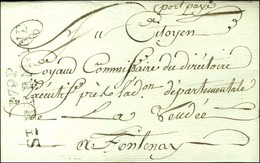 port payé
Au
Citoyen
Coyaud Commissaire du directoire
Executif pres l'adon departementale
de La Vendée
a Fontenay